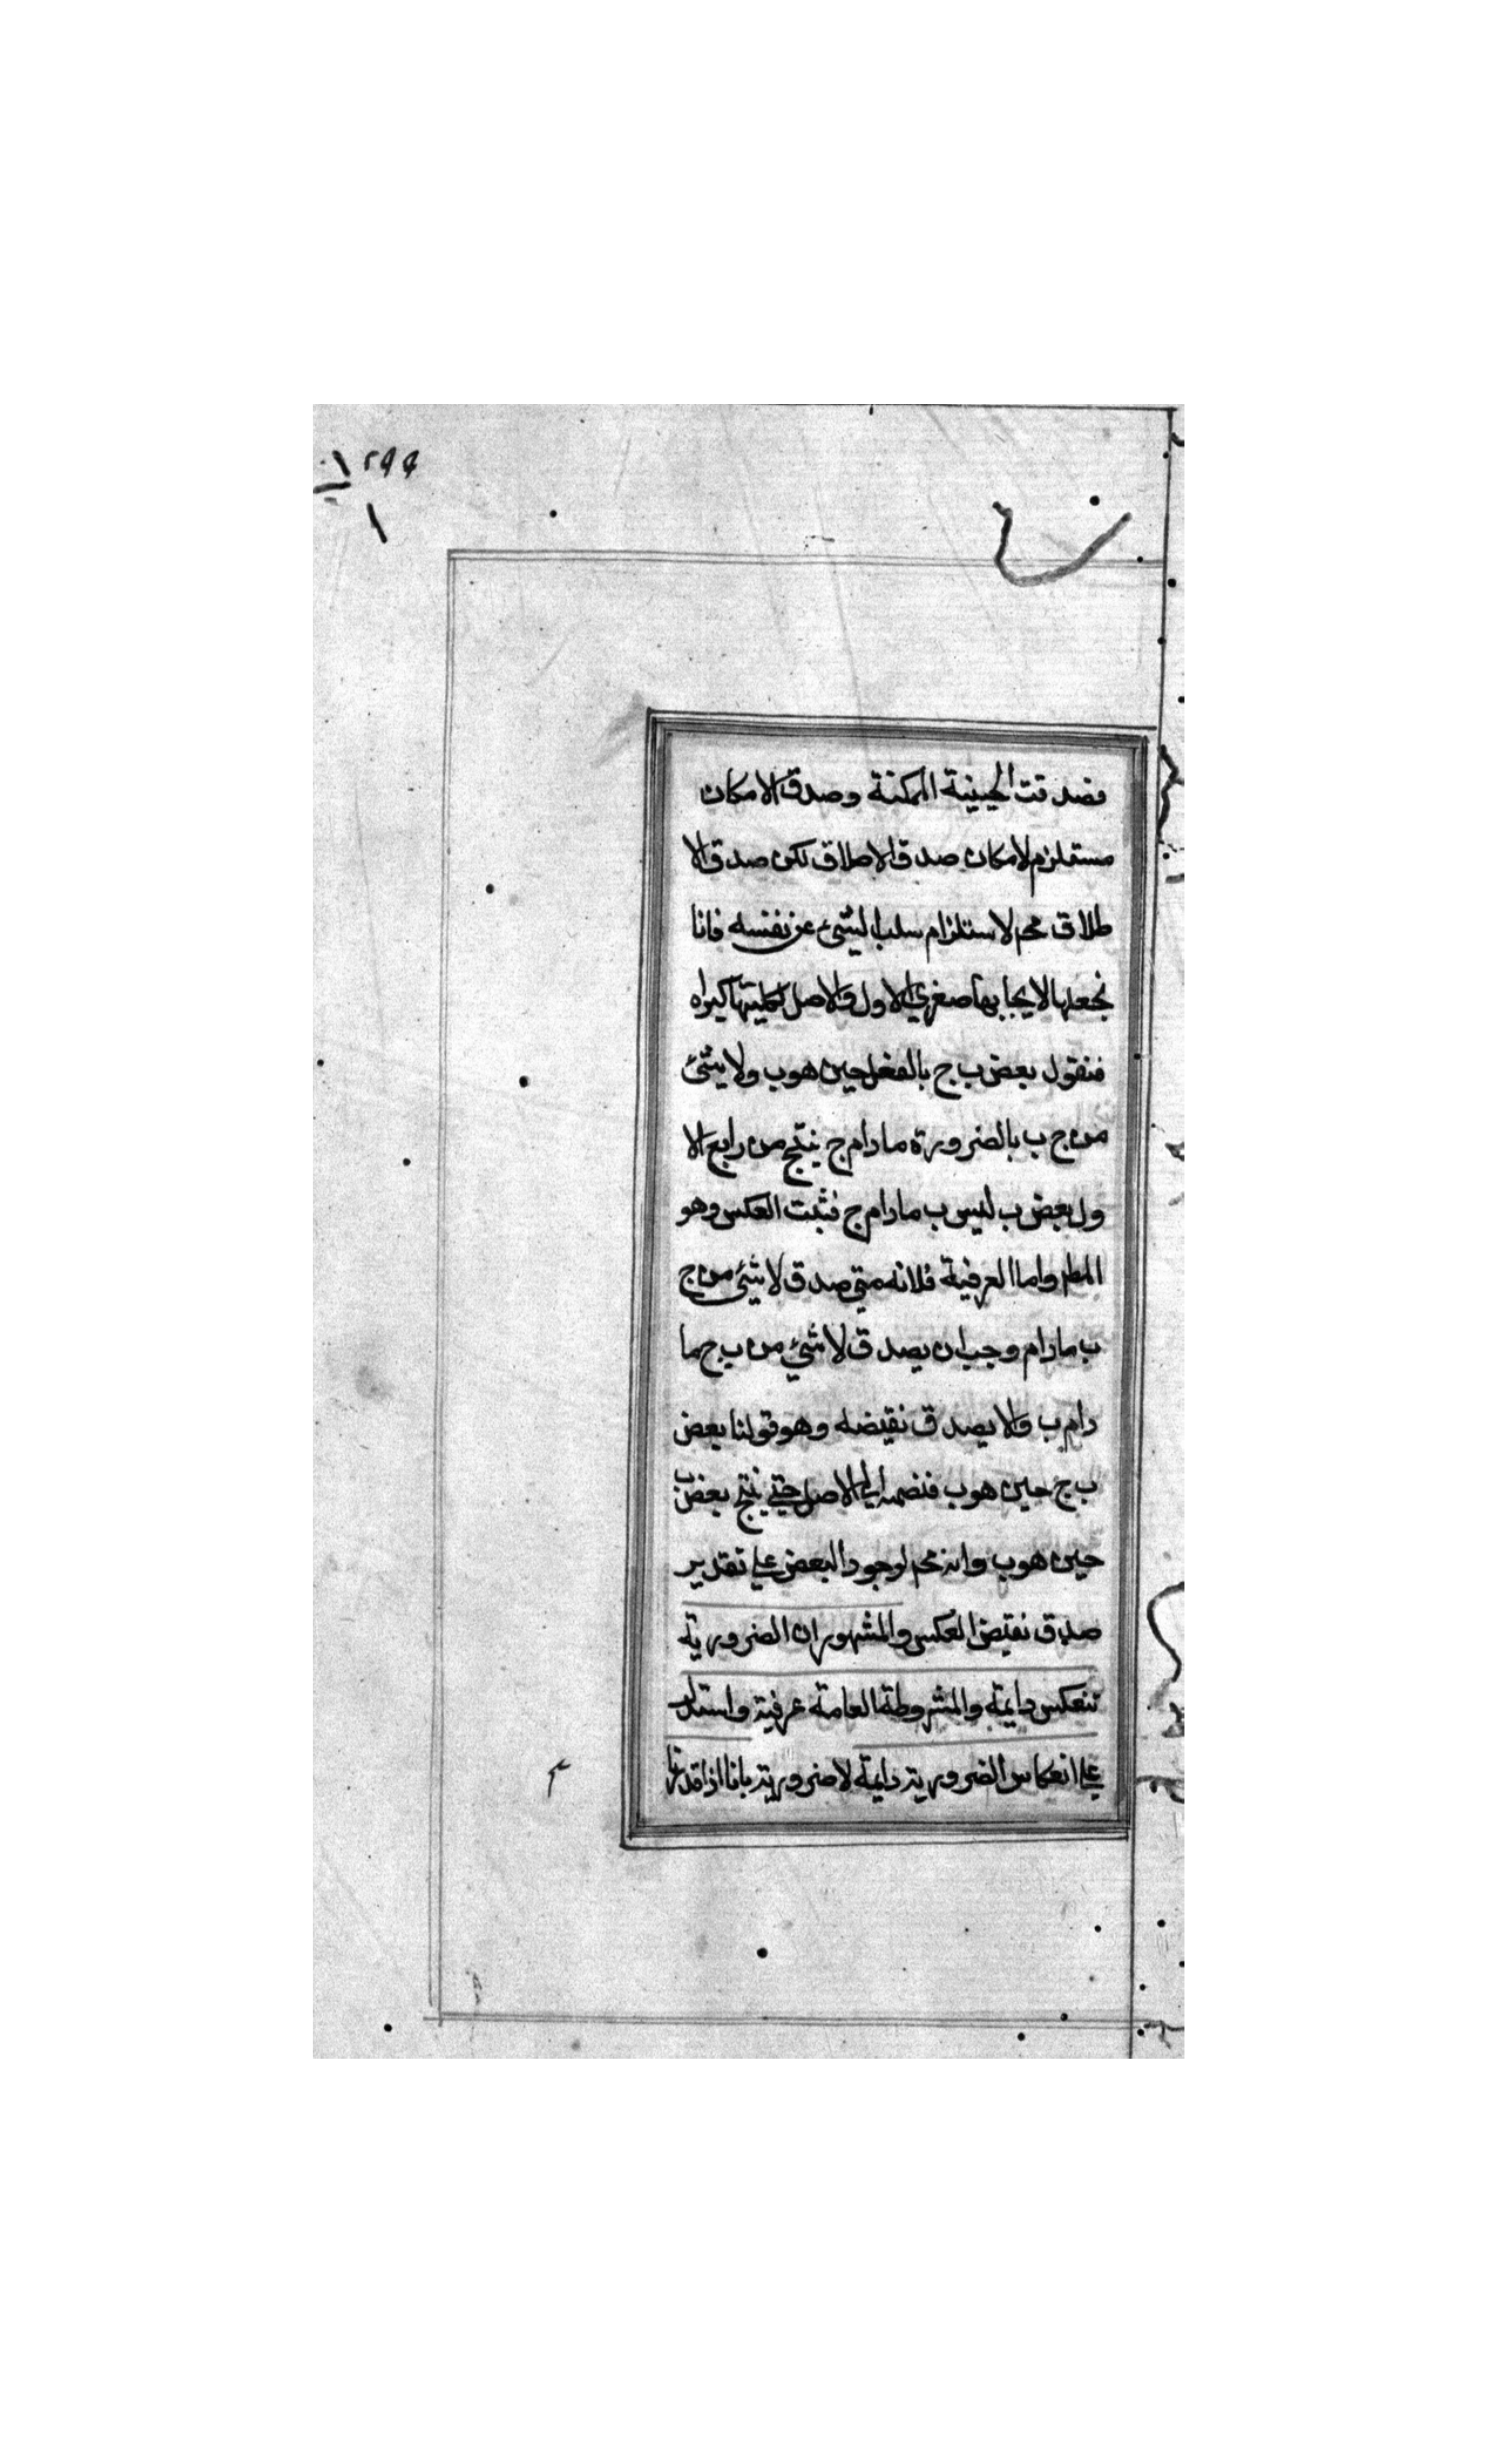 ٢٩٩
فصدقت الحينية الممكنة وصدق الامكان
مستلزم لامكان صدق الاطلاق لكن صدق الا
طلاق محم لاستلزام سلب الشئ عن نفسه فانا
نجعلها لايجابها صغرى الاول والاصل لكليتها كبراه
فنقول بعض ب ج بالفعل حين هو ب ولا شئ
من ج ب بالضرورة مادام ج ينتج من رابع الا
ول بعض ب ليس ب مادام ج فثبت العكس وهو
المطم واما العرفية فلانه متى صدق لا شئ من ج
ب مادام وجب ان يصدق لا شئ من ب ج ما
دام ب والا يصدق نقيضه وهو قولنا بعض
ب ج حين هو ب فنضمه الى الاصل حتى ينتج بعض ب
حين هو ب وانه محم لوجود البعض على تقدير
صدق نقيض العكس والمشهور ان الضرورية
تنعكس دايمة والمشروطة العامة عرفية واستدل
على انعكاس الضرورية دايمة لا ضرورية بانا اذا قدرنا